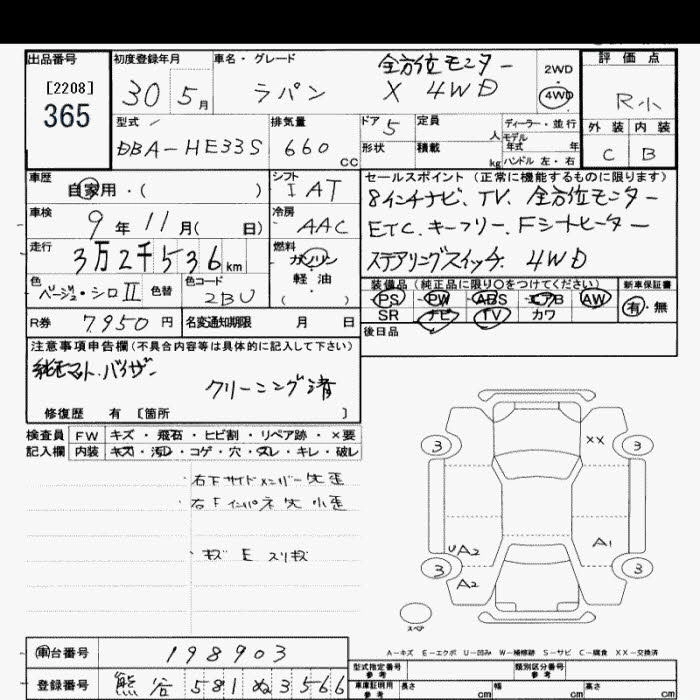 出品番号
[2208]
365
初度登録年月
30 5月
車名・グレード
ラパン X 4WD
全方位モニター
2WD
4WD
評価点
R小
外装 内装
C B
型式
DBA-HE33S
排気量
660 cc
ドア 5
定員 人
形状
積載 kg
ディーラー・並行
モデル年式 年
ハンドル 左・右
車歴
自家用・( )
シフト
IAT
車検
9年11月( 日)
冷房
AAC
走行
3万2千536km
燃料
ガソリン
軽油
( )
色
ベージュ・シロⅡ
色替
色コード
2BU
R券 7950円
名変通知期限 月 日
セールスポイント(正常に機能するものに限ります)
8インチナビ、TV、全方位モニター
ETC、キーフリー、Fシートヒーター
ステアリングスイッチ、4WD
装備品(純正品に限り○をつけてください)
新車保証書
PS PW ABS エアB AW
有・無
SR ナビ TV カワ
後日品
注意事項申告欄(不具合内容等は具体的に記入して下さい)
純正マット、バイザー
クリーニング済
修復歴 有 [箇所 ]
検査員 FW キズ・飛石・ヒビ割・リペア跡・×要
記入欄 内装 キズ・汚レ・コゲ・穴・スレ・キレ・破レ
・右下サイドメンバー先歪
・右Fインパネ先小歪
・キズ E スリキズ
3
3
3
3
XX
UA2
A2
A1
スペア
A-キズ E-エクボ U-凹み W-補修跡 S-サビ C-腐食 XX-交換済
車台番号 198903
登録番号 熊谷 581 ぬ 3566
型式指定番号
参考
類別区分番号
参考
車庫証明用
参考
長さ cm
幅 cm
高さ cm